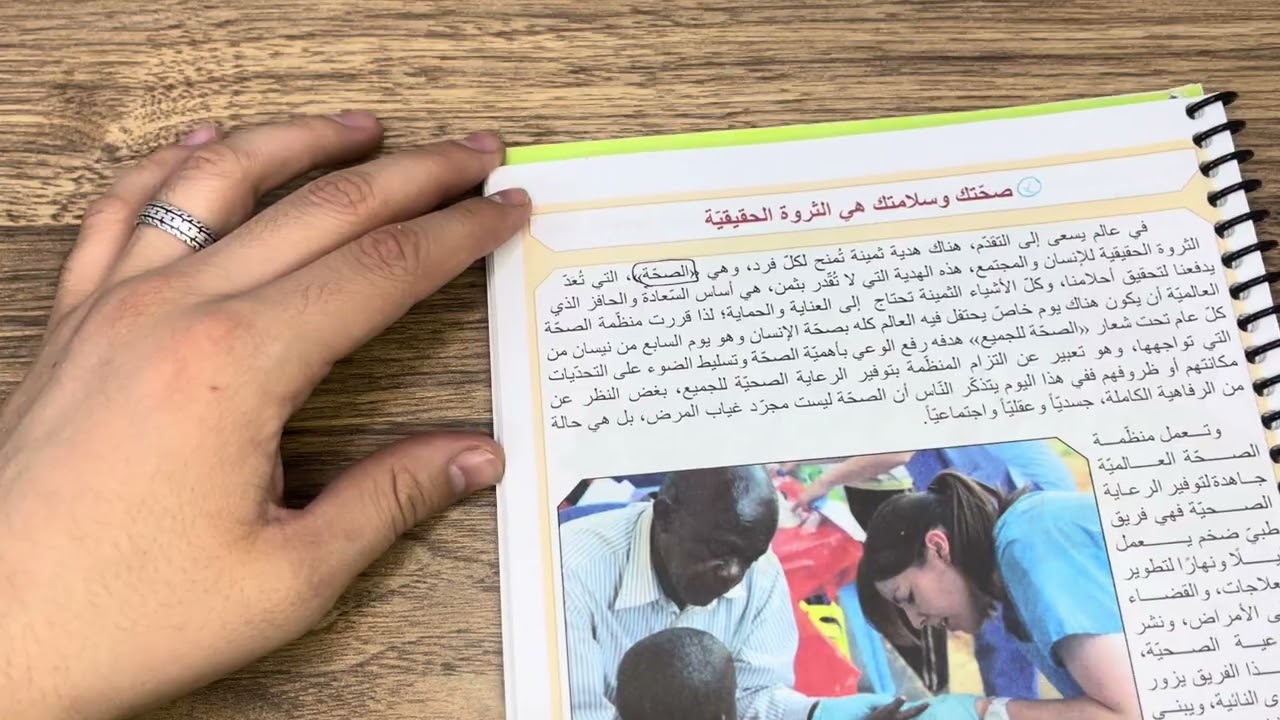 صحّتك وسلامتك هي الثروة الحقيقيّة
في عالم يسعى إلى التقدّم، هناك هدية ثمينة تُمنح لكلّ فرد، وهي «الصحّة»، التي تُعَدّ
الثروة الحقيقية للإنسان والمجتمع، هذه الهدية التي لا تُقدّر بثمن، هي أساس السّعادة والحافز الذي
يدفعنا لتحقيق أحلامنا، وكلّ الأشياء الثمينة تحتاج إلى العناية والحماية؛ لذا قررت منظّمة الصحّة
العالميّة أن يكون هناك يوم خاصّ يحتفل فيه العالم كله بصحّة الإنسان وهو يوم السابع من نيسان من
كلّ عام تحت شعار «الصحّة للجميع» هدفه رفع الوعي بأهميّة الصحّة وتسليط الضوء على التحدّيات
التي تواجهها، وهو تعبير عن التزام المنظّمة بتوفير الرعاية الصحيّة للجميع، بغض النظر عن
مكانتهم أو ظروفهم ففي هذا اليوم يتذكّر النّاس أن الصحّة ليست مجرّد غياب المرض، بل هي حالة
من الرفاهية الكاملة، جسديّاً وعقليّاً واجتماعيّاً.
وتعمل منظّمة
الصحّة العالميّة
جاهدة لتوفير الرعاية
الصحيّة فهي فريق
طبيّ ضخم يعمل
ونهارًا لتطوير
والقضاء
الأمراض، ونشر
الصحيّة،
الفريق يزور
النائية، ويبني